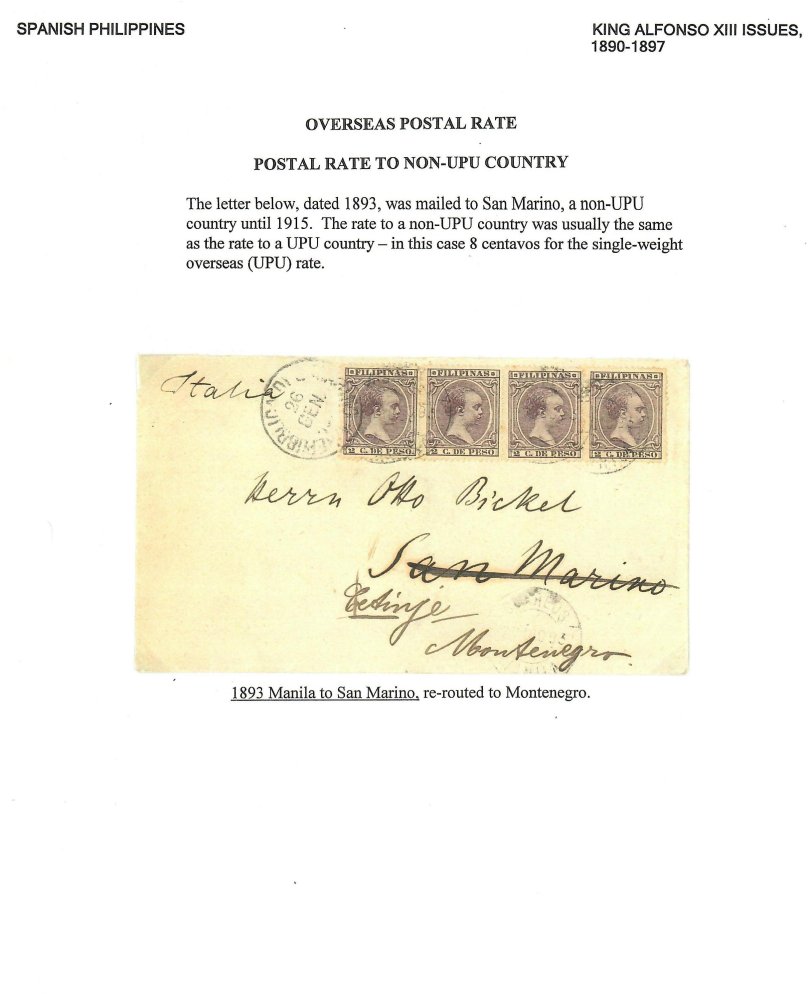 SPANISH PHILIPPINES
KING ALFONSO XIII ISSUES,
1890-1897
OVERSEAS POSTAL RATE
POSTAL RATE TO NON-UPU COUNTRY
The letter below, dated 1893, was mailed to San Marino, a non-UPU
country until 1915. The rate to a non-UPU country was usually the same
as the rate to a UPU country – in this case 8 centavos for the single-weight
overseas (UPU) rate.
Italia
26
GEN
FILIPINAS FILIPINAS FILIPINAS FILIPINAS
2 C. DE PESO 2 C. DE PESO 2 C. DE PESO 2 C. DE PESO
Herrn Otto Bickel
San Marino
Cetinje
Montenegro.
1893 Manila to San Marino, re-routed to Montenegro.